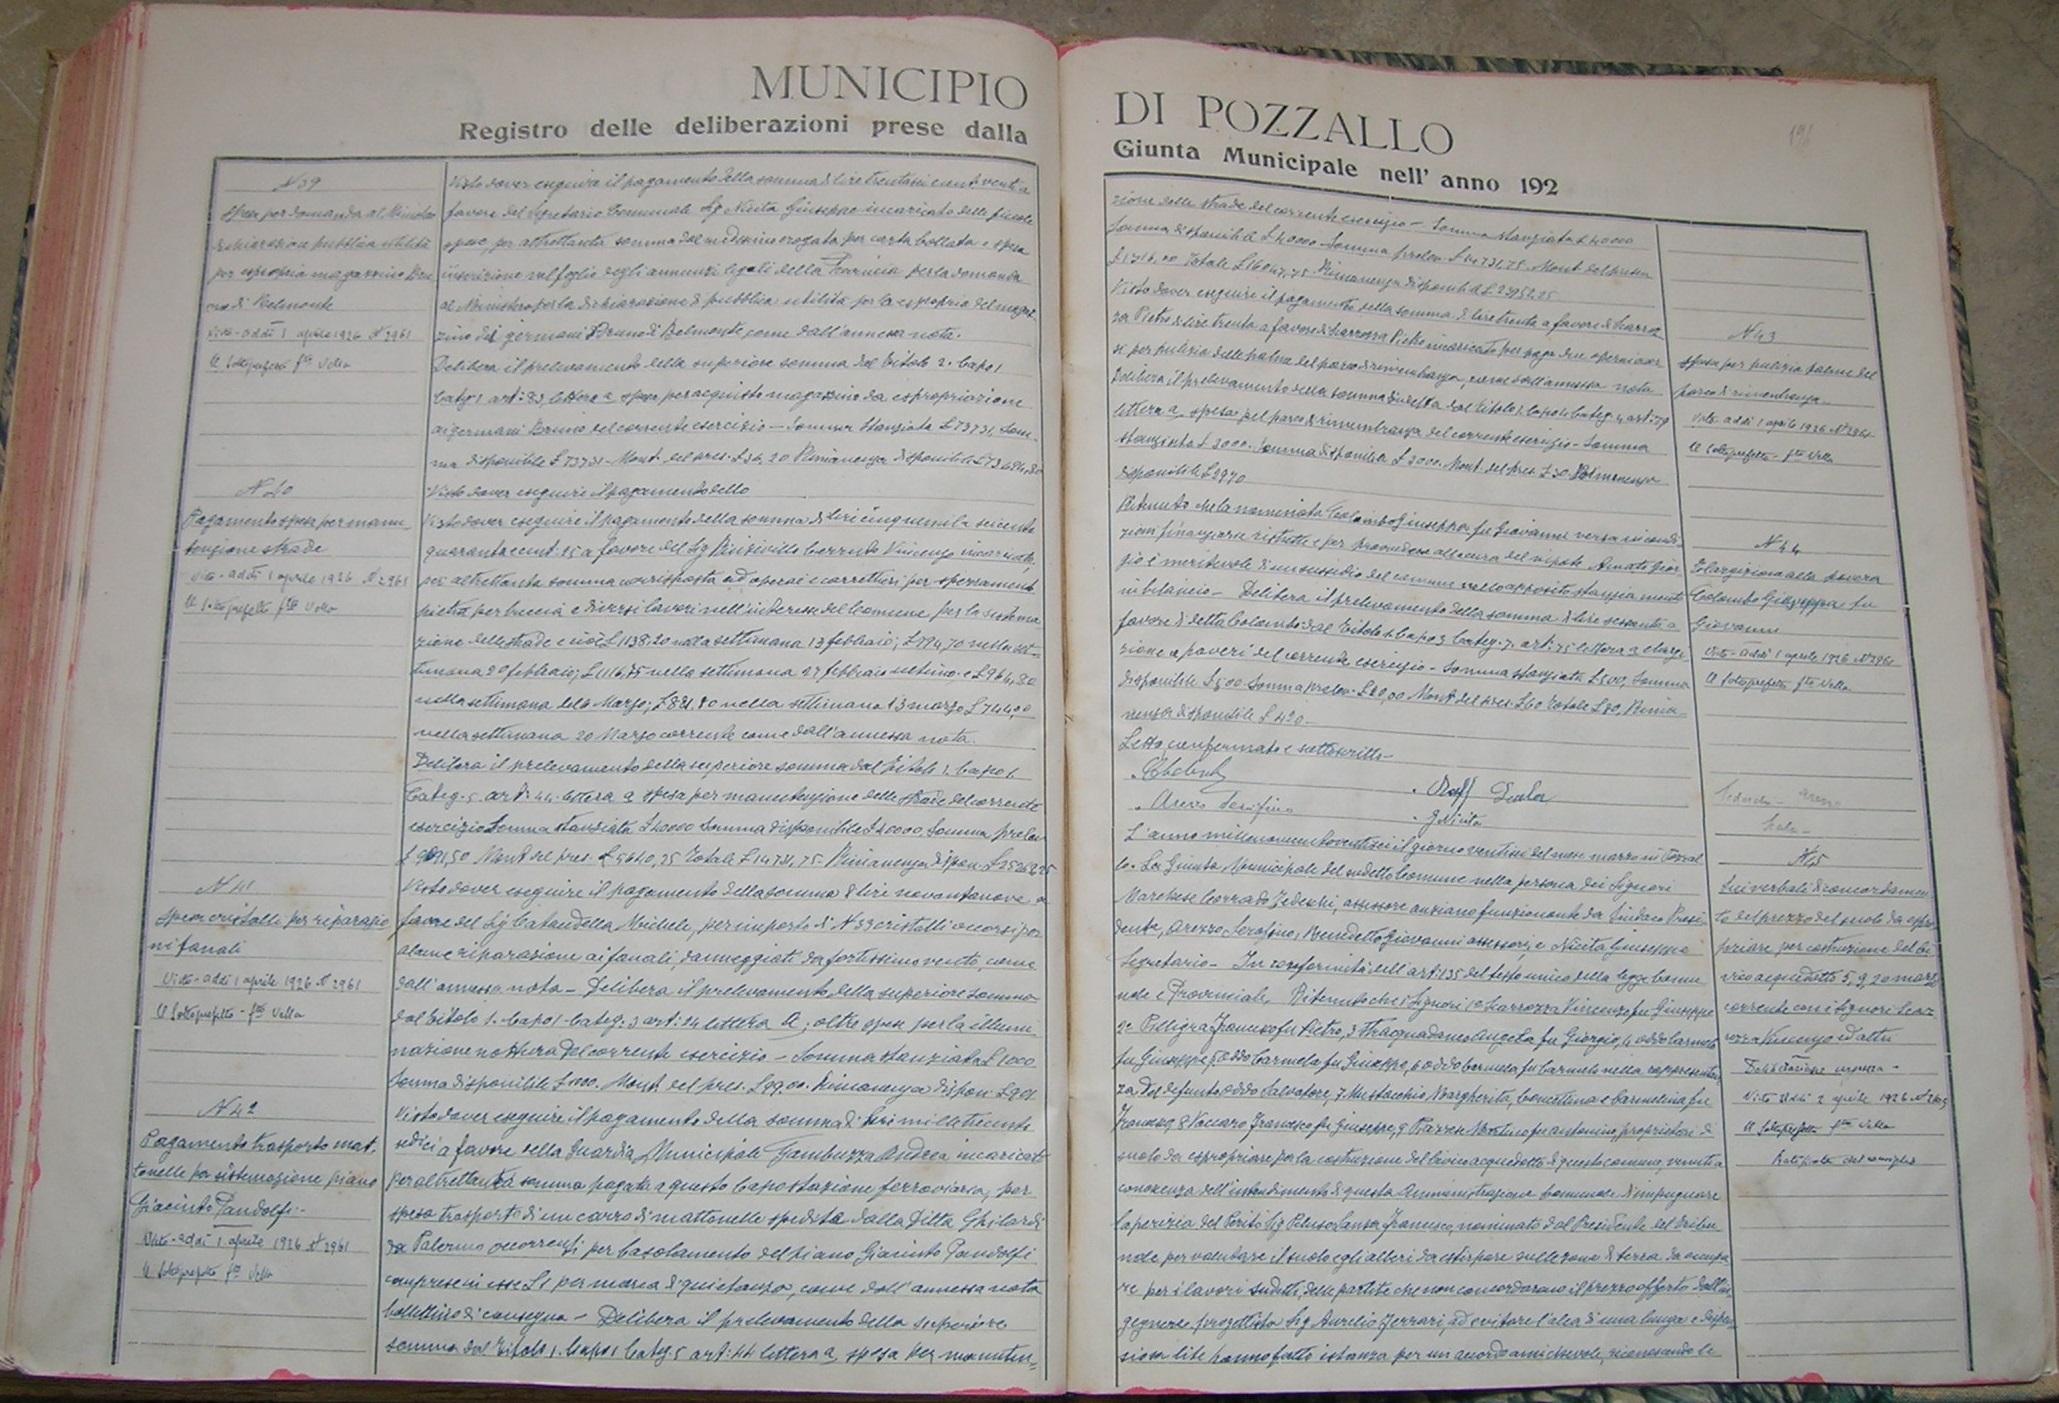 MUNICIPIO
Registro delle deliberazioni prese dalla
N 39
Spese per domanda al Ministero
dichiarazione pubblica utilità
per espropria magazzino Bru
no di Belmonte
Visto - addì 1 aprile 1926 N 2961
Il Sottoprefetto fto Vella
Visto dover eseguire il pagamento della somma di lire trentasei cent. venti a
favore del Segretario Comunale Sig Nicita Giuseppe incaricato delle piccole
spese, per altrettanta somma dal medesimo erogata per carta bollata e spesa
inserzione nel foglio degli annunzi legali della Provincia per la domanda
al Ministero per la dichiarazione di pubblica utilità per la espropria del magaz
zino dei germani Bruno di Belmonte, come dall'annessa nota.
Delibera il prelevamento della superiore somma dal Titolo 2. Capo 1
Categ 1 art: 83, lettera a spese per acquisto magazzino da espropriazione
ai germani Bruno del corrente esercizio - Somma stanziata £ 73731, Som-
ma disponibile £ 73731 - Mont. del pres. £ 36,20 Rimanenza disponibile £ 73694,80
N 40
Pagamento spese per manu
tenzione strade
Visto - addì 1 aprile 1926 N 2961
Il Sottoprefetto fto Vella
Visto dover eseguire il pagamento dello
Visto dover eseguire il pagamento della somma di lire cinquemila seicento
quaranta cent. 25 a favore del Sig Corrado Vincenzo incaricato,
per altrettanta somma corrisposta ad operai e carrettieri per spezzamento
pietra per breccia e diversi lavori nell'interesse del Comune per la sistema
zione delle strade e cioè £ 1138.20 nella settimana 13 febbraio; £ 994,70 nella set-
timana 20 febbraio; £ 1116,75 nella settimana 27 febbraio ultimo e £ 964,80
nella settimana del 6 Marzo; £ 821.80 nella settimana 13 marzo £ 744,00
nella settimana 20 Marzo corrente come dall'annessa nota.
Delibera il prelevamento della superiore somma dal Titolo 1. Capo 1.
Categ. 5 art: 44 lettera a spesa per manutenzione delle strade del corrente
esercizio Somma stanziata £ 40000 Somma disponibile £ 40000 Somma prelev
£ 9091,50 Mont. del pres. £ 5640,25 Totale £ 14731,75. Rimanenza dispon. £ 25268,25
N 41
Spesa cristalli per riparazio
ni fanali
Visto - addì 1 aprile 1926 N 2961
Il Sottoprefetto - fto Vella
Visto dover eseguire il pagamento della somma di lire novantanove a
favore del Sig Cataudella Michele, per importo di N 33 cristalli occorsi per
alcune riparazione ai fanali, danneggiati da fortissimo vento, come
dall'annessa nota - Delibera il prelevamento della superiore somma
dal Titolo 1. Capo 1. Categ. 3 art: 24 lettera a, oltre spese per la illumi
nazione notturna del corrente esercizio - Somma stanziata £ 1000
Somma disponibile £ 1000. Mont. del pres. £ 99.00. Rimanenza dispon. £ 901
N 42
Pagamento trasporto mat.
tonelle per sistemazione piano
Giacinto Pandolfi -
Visto - addì 1 aprile 1926 N 2961
Il Sottoprefetto fto Vella
Visto dover eseguire il pagamento della somma di lire milletrecento
sedici a favore della Guardia Municipale Tambuzza Andrea incaricato
per altrettanta somma pagata a questo Capostazione ferroviaria, per
spesa trasporto di un carro di mattonelle spedita dalla Ditta Ghilardi
da Palermo occorrenti per basolamento del piano Giacinto Pandolfi
comprese in esse £ 1 per marca di quietanza, come dall'annessa nota
bollettino di consegna - Delibera il prelevamento della superiore
somma dal Titolo 1. Capo 1 Categ 5 art: 44 lettera a, spesa per manuten-
DI POZZALLO
Giunta Municipale nell' anno 192
191
zione delle strade del corrente esercizio - Somma stanziata £ 40000
Somma disponibile £ 40000 - Somma prelev. £ 14731,75. Mont. del presen
£ 1316.00 Totale £ 16047,75 Rimanenza disponibile £ 23952.25
N 43
Spesa per pulizia palme del
parco di rimembranza -
Visto addì 1 aprile 1926 N 2961
Il Sottoprefetto - fto Vella
Visto dover eseguire il pagamento della somma di lire trenta a favore di Scarroz
za Pietro di lire trenta a favore di Scarrozza Pietro incaricato per paga due operai occor
si per pulizia delle palme del parco di rimembranza, come dall'annessa nota
Delibera il prelevamento della somma sudetta dal Titolo 1. Capo 1 Categ. 4 art: 39
lettera a, spesa pel parco di rimembranza del corrente esercizio - Somma
stanziata £ 3000. Somma disponibile £ 3000. Mont. del pres. £ 30 Rimanenza
disponibile £ 2970
N 44
Elargizione alla povera
Colombo Giuseppa fu
Giovanni
Visto - addì 1 aprile 1926 N 2961
Il Sottoprefetto fto Vella
Ritenuto che la nominata Colombo Giuseppa fu Giovanni versa in condi
zioni finanziarie ristrette e per provvedere alla cura del nipote Amato Gior
gio è meritevole di un sussidio del comune nello apposito stanziamento
in bilancio - Delibera il prelevamento della somma di lire sessanta a
favore di detta Colombo dal Titolo 1. Capo 3 Categ. 7. art: 75 lettera a elargi
zione a poveri del corrente esercizio - Somma stanziata £ 500, Somma
disponibile £ 500 Somma prelev. £ 20,00 Mont. del pres. £ 60 Totale £ 80, Rima-
nenza disponibile £ 420 -
Letto, confermato e sottoscritto -
Arezzo Serafino
G Nicita
N 45
Sui verbali di concordamen
to del prezzo del suolo da espro
priare, per costruzione del ci
vico acquedotto 5, 9, 20 marzo
corrente con i Signori Scar
rozza Vincenzo ed altri
Visto Addì 2 aprile 1926 N
Il Sottoprefetto fto Vella
Ratificata dal consiglio
L'anno millenovecentoventisei il giorno ventisei del mese marzo in Pozzal
lo. La Giunta Municipale del sudetto Comune nella persona dei Signori
Marchese Corrado Tedeschi, assessore anziano funzionante da Sindaco Presi
dente, Arezzo Serafino, Benedetto Giovanni assessori, e Nicita Giuseppe
Segretario - In conformità dell'art: 135 del testo unico della legge Comu
nale e Provinciale. Ritenuto che i Signori 1° Scarrozza Vincenzo fu Giuseppe
2° Pelligra Francesco fu Pietro, 3 Tracquadaneo Angela fu Giorgio, 4 Oddo Carmelo
fu Giuseppe, 5 Oddo Carmela fu Giuseppe, 6 Oddo Carmela fu Carmelo nella rappresentan
za del defunto Oddo Salvatore, 7 Mustacchio Margherita, Concettina e Carmelina fu
Francesco, 8 Vaccaro Francesco fu Giuseppe, 9 fu Antonino, proprietari di
suolo da espropriare per la costruzione del civico acquedotto di questo comune, venuti a
conoscenza dell'intendimento di questa Amministrazione Comunale d'impugnare
la perizia del Perito Sig Peluso Sansa Francesco, nominato dal Presidente del Tribu
nale per valutare il suolo e gli alberi da estirpare sulle zone di terra da occupa
re per i lavori sudetti, delle partite che non concordarono il prezzo offerto dall'in
gegnere progettista Sig Aurelio Ferrari, ad evitare l'alea di una lunga e dispen
diosa lite hanno fatto istanza per un accordo amichevole, riconoscendo le